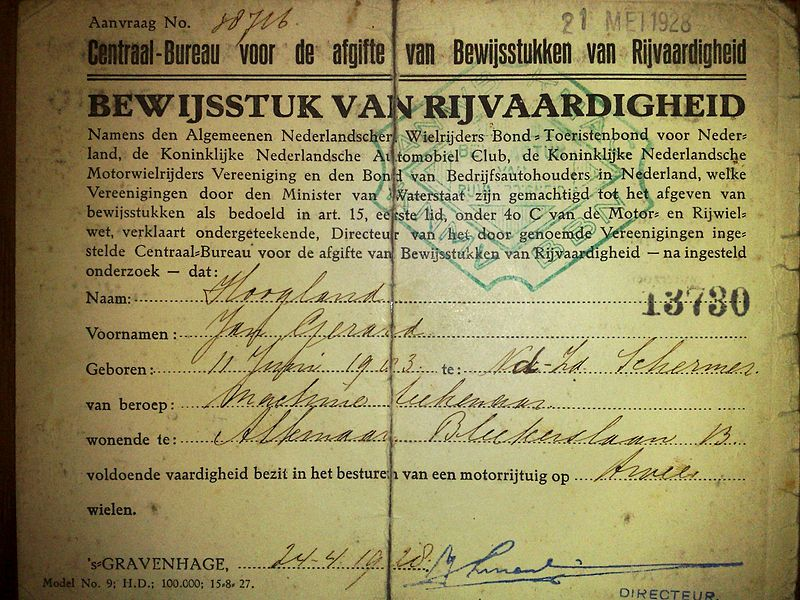 Aanvraag No.
21 MEI 1928
Centraal-Bureau voor de afgifte van Bewijsstukken van Rijvaardigheid
BEWIJSSTUK VAN RIJVAARDIGHEID
Namens den Algemeenen Nederlandschen Wielrijders Bond-Toeristenbond voor Neder-
land, de Koninklijke Nederlandsche Automobiel Club, de Koninklijke Nederlandsche
Motorwielrijders Vereeniging en den Bond van Bedrijfsautohouders in Nederland, welke
Vereenigingen door den Minister van Waterstaat zijn gemachtigd tot het afgeven van
bewijsstukken als bedoeld in art. 15, eerste lid, onder 4o C van de Motor- en Rijwiel-
wet, verklaart ondergeteekende, Directeur van het door genoemde Vereenigingen inge-
stelde Centraal-Bureau voor de afgifte van Bewijsstukken van Rijvaardigheid — na ingesteld
onderzoek — dat:
Naam: Hoogland
13730
Voornamen: Jan Gerard
Geboren: 11 Juni 1903 te: Nd-Zd Schermer.
van beroep: Machine teekenaar
wonende te: Alkmaar Bleekerslaan 13
voldoende vaardigheid bezit in het besturen van een motorrijtuig op twee
wielen.
's-GRAVENHAGE, 24-4 1928.
DIRECTEUR.
Model No. 9; H.D.; 100.000; 15-8-27.